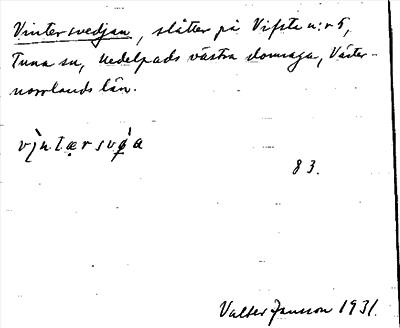 Vintersvedjan, slåtter på Vifsta n:r 5,
Tuna sn, Medelpads västra domsaga, Väster-
norrlands län.
83.
Valter Jansson 1931.